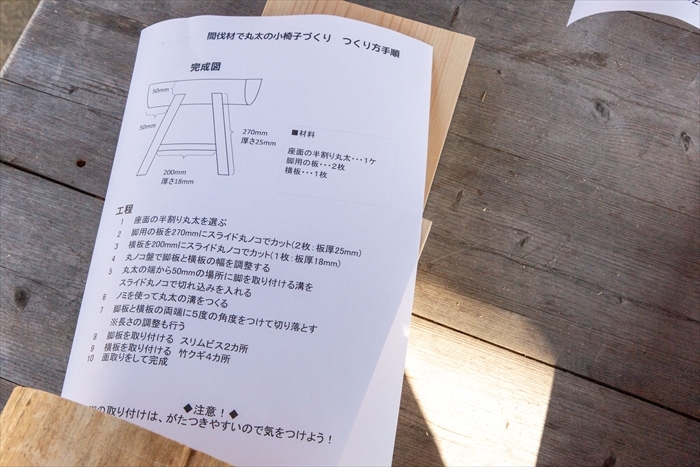 間伐材で丸太の小椅子づくり　つくり方手順
完成図
50mm
50mm
270mm
厚さ25mm
200mm
厚さ18mm
■材料
座面の半割り丸太・・・1ケ
脚用の板・・・2枚
横板・・・1枚
工程
1 座面の半割り丸太を選ぶ
2 脚用の板を270mmにスライド丸ノコでカット(2枚：板厚25mm)
3 横板を200mmにスライド丸ノコでカット(1枚：板厚18mm)
4 丸ノコ盤で脚板と横板の幅を調整する
5 丸太の端から50mmの場所に脚を取り付ける溝を
スライド丸ノコで切れ込みを入れる
6 ノミを使って丸太の溝をつくる
7 脚板と横板の両端に5度の角度をつけて切り落とす
※長さの調整も行う
8 脚板を取り付ける スリムビス2カ所
9 横板を取り付ける 竹クギ4カ所
10 面取りをして完成
◆注意！◆
の取り付けは、がたつきやすいので気をつけよう！